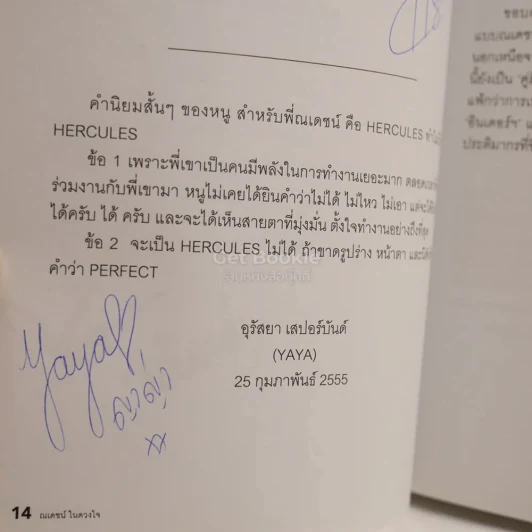 คำนิยมสั้นๆ ของหนู สำหรับพี่ณเดชน์ คือ HERCULES
HERCULES
ข้อ 1 เพราะพี่เขาเป็นคนมีพลังในการทำงานเยอะมาก
ร่วมงานกับพี่เขามา หนูไม่เคยได้ยินคำว่าไม่ได้ ไม่ไหว ไม่เอา
ได้ครับ ได้ ครับ และจะได้เห็นสายตาที่มุ่งมั่น ตั้งใจทำงานอย่างถึงที่สุด
ข้อ 2 จะเป็น HERCULES ไม่ได้ ถ้าขาดรูปร่าง หน้าตา
คำว่า PERFECT
Get Bookie
อุรัสยา เสปอร์บันด์
(YAYA)
25 กุมภาพันธ์ 2555
Yaya
ญาญ่า
xx
14 ณเดชน์ ในดวงใจ
ขอบ
แบบณเดช
นอกเหนือจ
นี้ยังเป็น
แฟ้กว่าการเ
ประติมากรที่